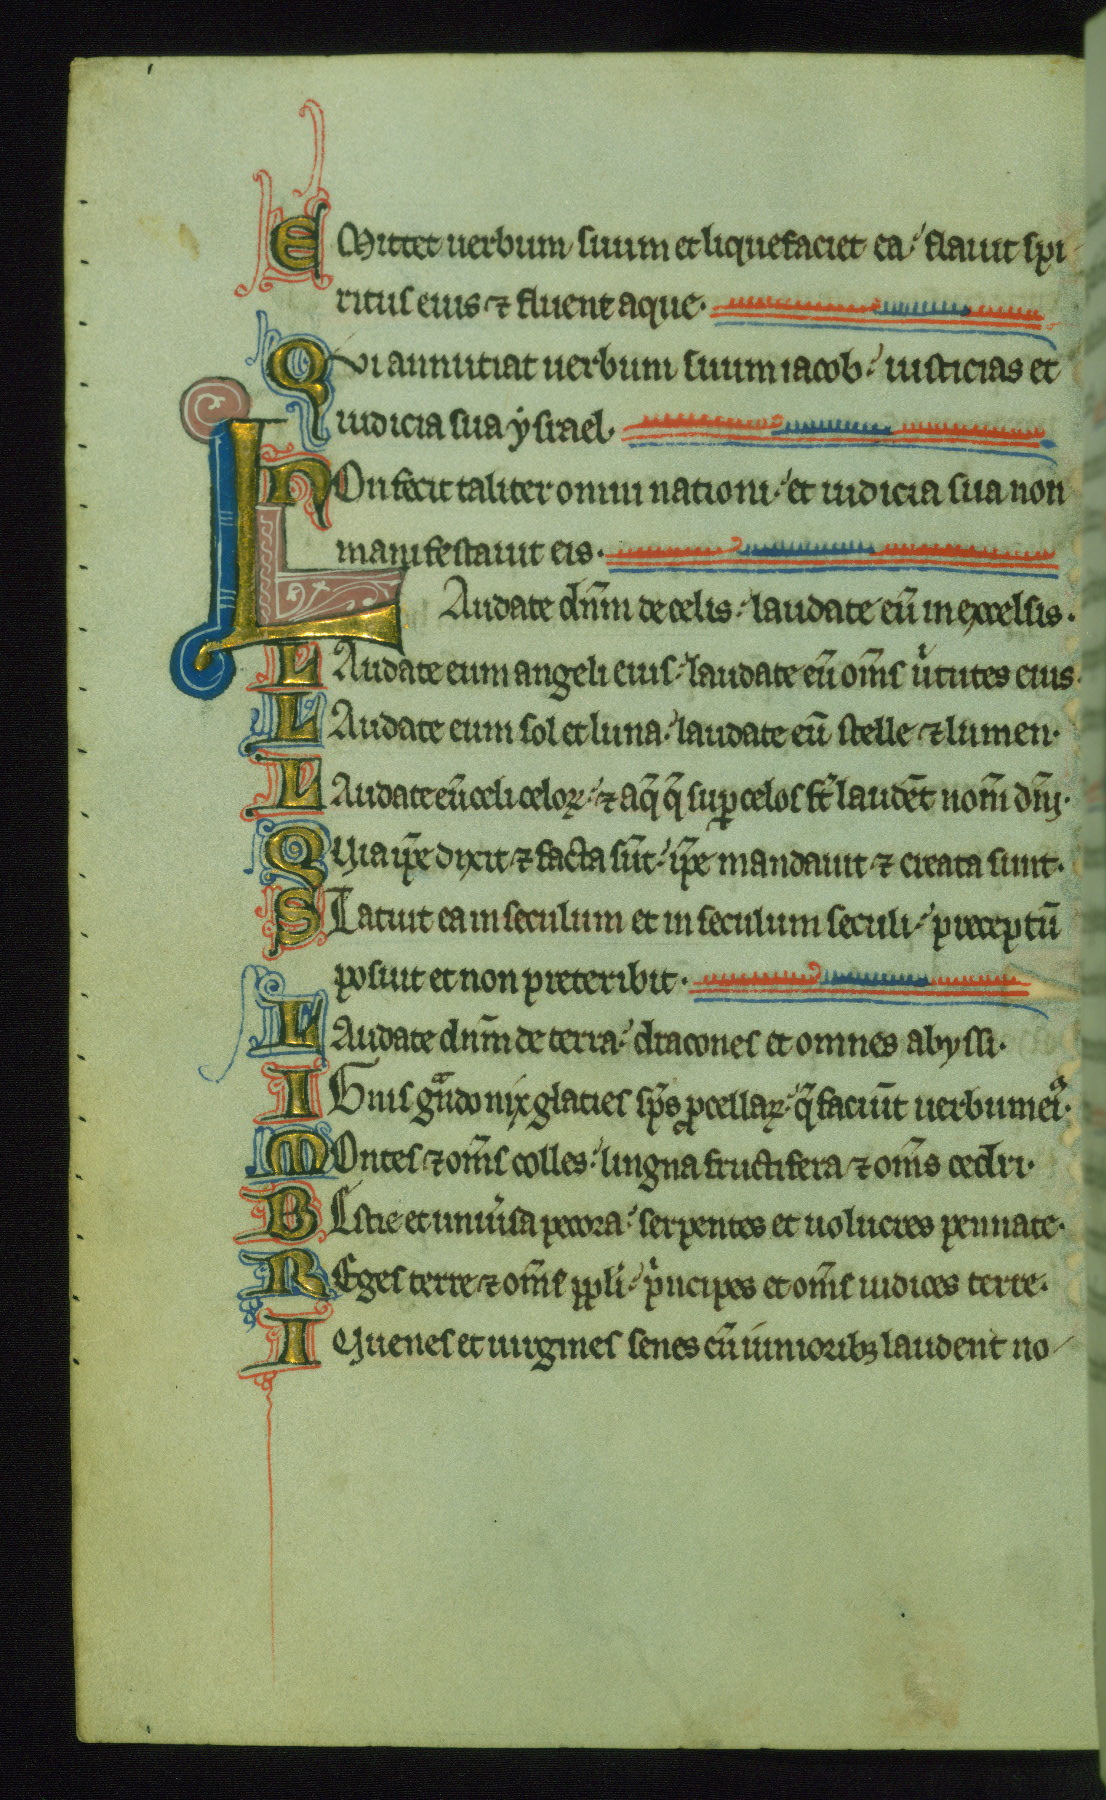 EMittet uerbum suum et liquefaciet ea: flauit spi
ritus eius ⁊ fluent aque.
Qui annutiat uerbum suum iacob: iusticias et
iudicia sua ẏsrael.
NOn fecit taliter omni nationi: et iudicia sua non
manifestauit eis.
LAudate dn̄m de celis: laudate eū in excelsis.
LAudate eum angeli eius: laudate eū om̄s u̓tutes eius.
LAudate eum sol et luna: laudate eū stelle ⁊ lumen.
LAudate eū celi celoꝝ: ⁊ aq̄ q̄ sup̱ celos st̄ laudēt nom̄ dn̄i.
QUia ip̄e dixit ⁊ facta sūt: ip̄e mandauit ⁊ creata sunt.
STatuit ea in seculum et in seculum seculi: preceptū
posuit et non preteribit.
LAudate dn̄m de terra: dracones et omnes abyssi.
IGnis gͣndo nix glacies sp̄s ꝓcellaꝝ: q̄ faciūt uerbum ei᷒.
MOntes ⁊ om̄s colles: lingna fructifera ⁊ om̄s cedri.
BEstie et uniu̓sa pecora: serpentes et uolucres pennate.
REges terre ⁊ om̄s pp̄li: pͥncipes et om̄s iudices terre.
IUuenes et uirgines senes cū iunioribꝫ laudent no